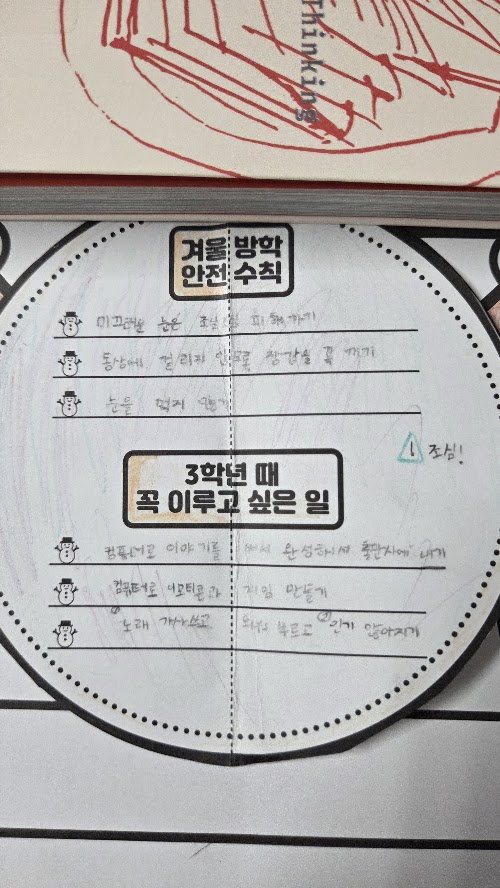 Thinking
겨울 방학
안전 수칙
미끄러운 눈은 조심히 피해가기
동상에 걸리지 않도록 장갑을 꼭 끼기
눈을 먹지 않기
! 조심!
3학년 때
꼭 이루고 싶은 일
컴퓨터로 이야기를 써서 완성하여서 출판사에 내기
컴퓨터로 이모티콘과 게임 만들기
① 노래 가사쓰고 외워 부르고 ② 인기 많아지기